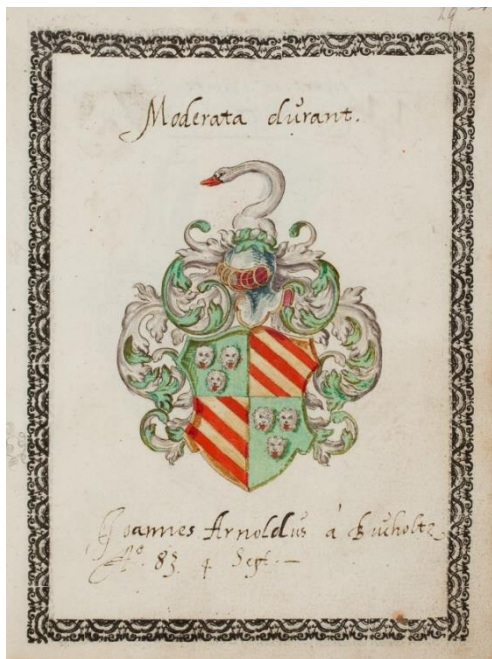 Moderata durant.
Joannes Arnoldus á Bucholtz
Aº. 83 4 Sept. —